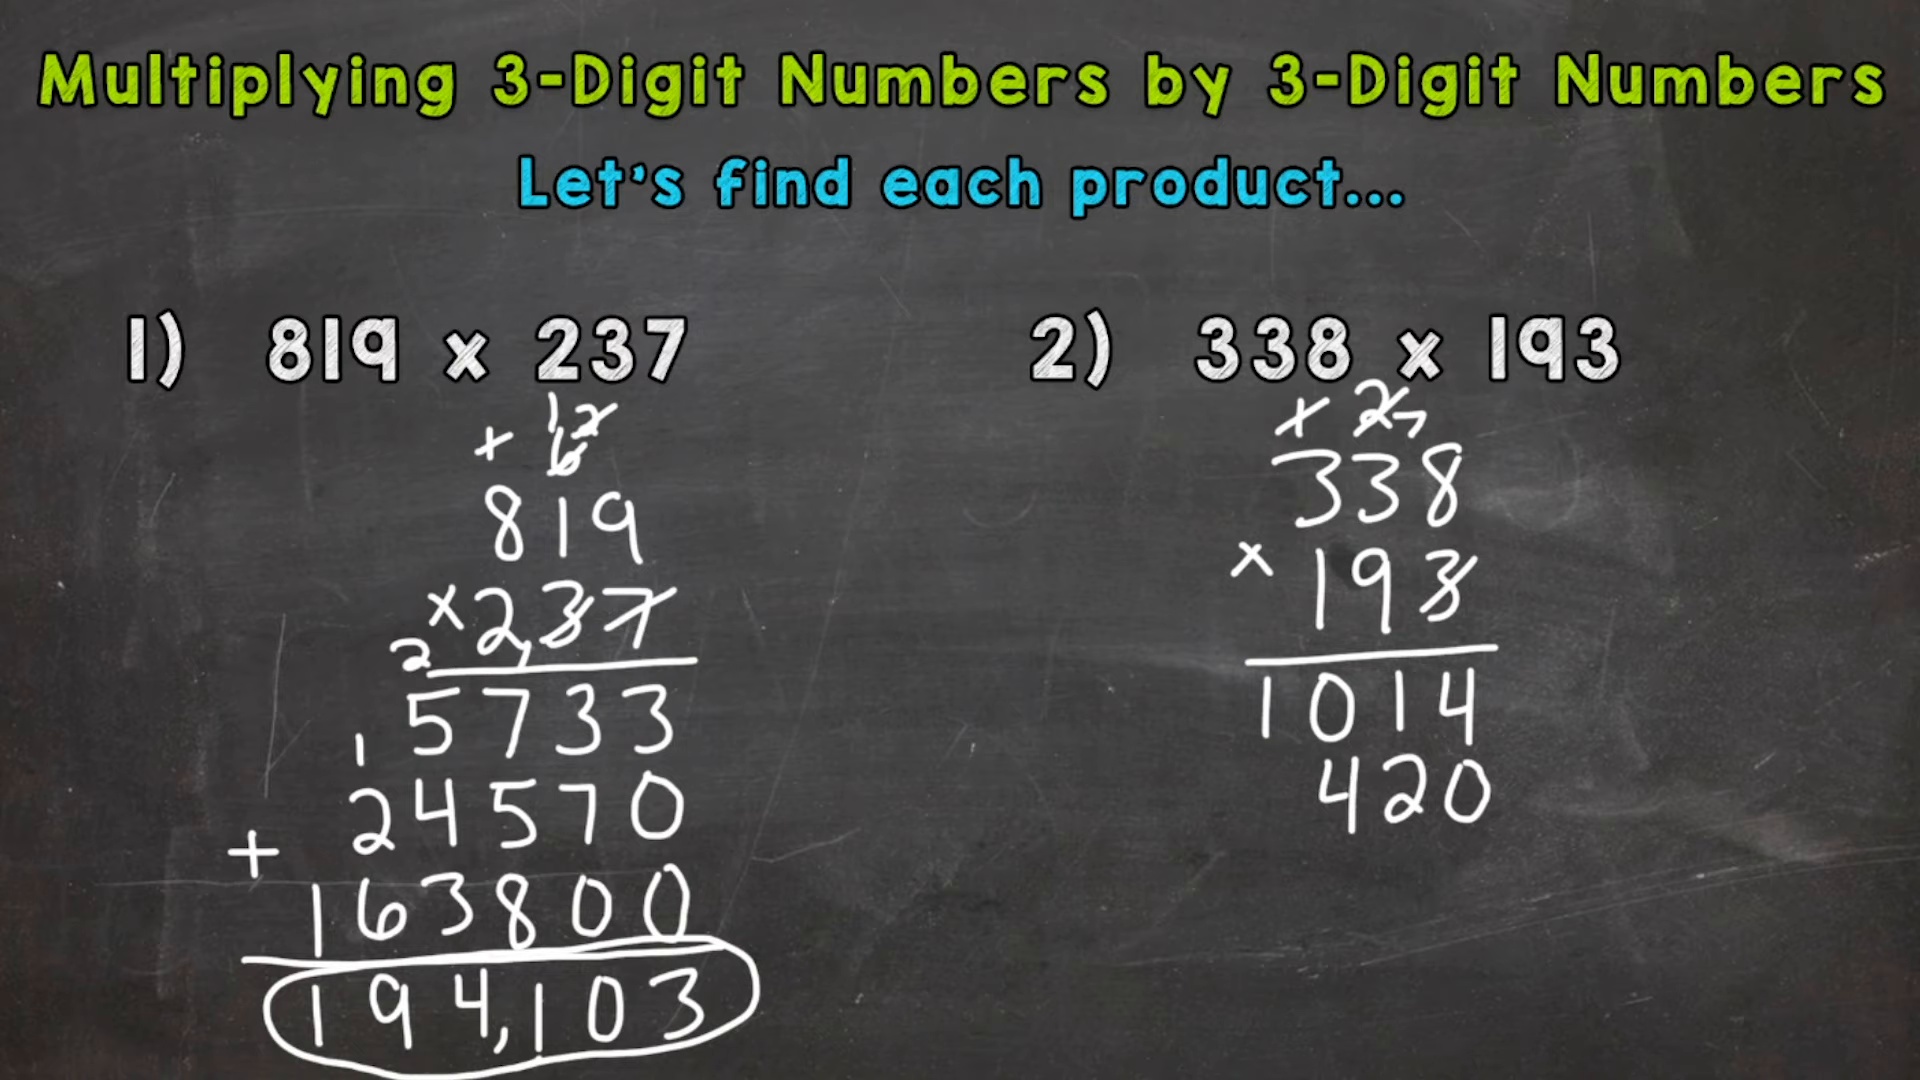 Multiplying 3-Digit Numbers by 3-Digit Numbers
Let's find each product...
1) 819 x 237
1 2
+ 6
819
x 2,37
2
5733
1
24570
+
163800
194,103
2) 338 x 193
1 2 7
338
x 193
1014
420